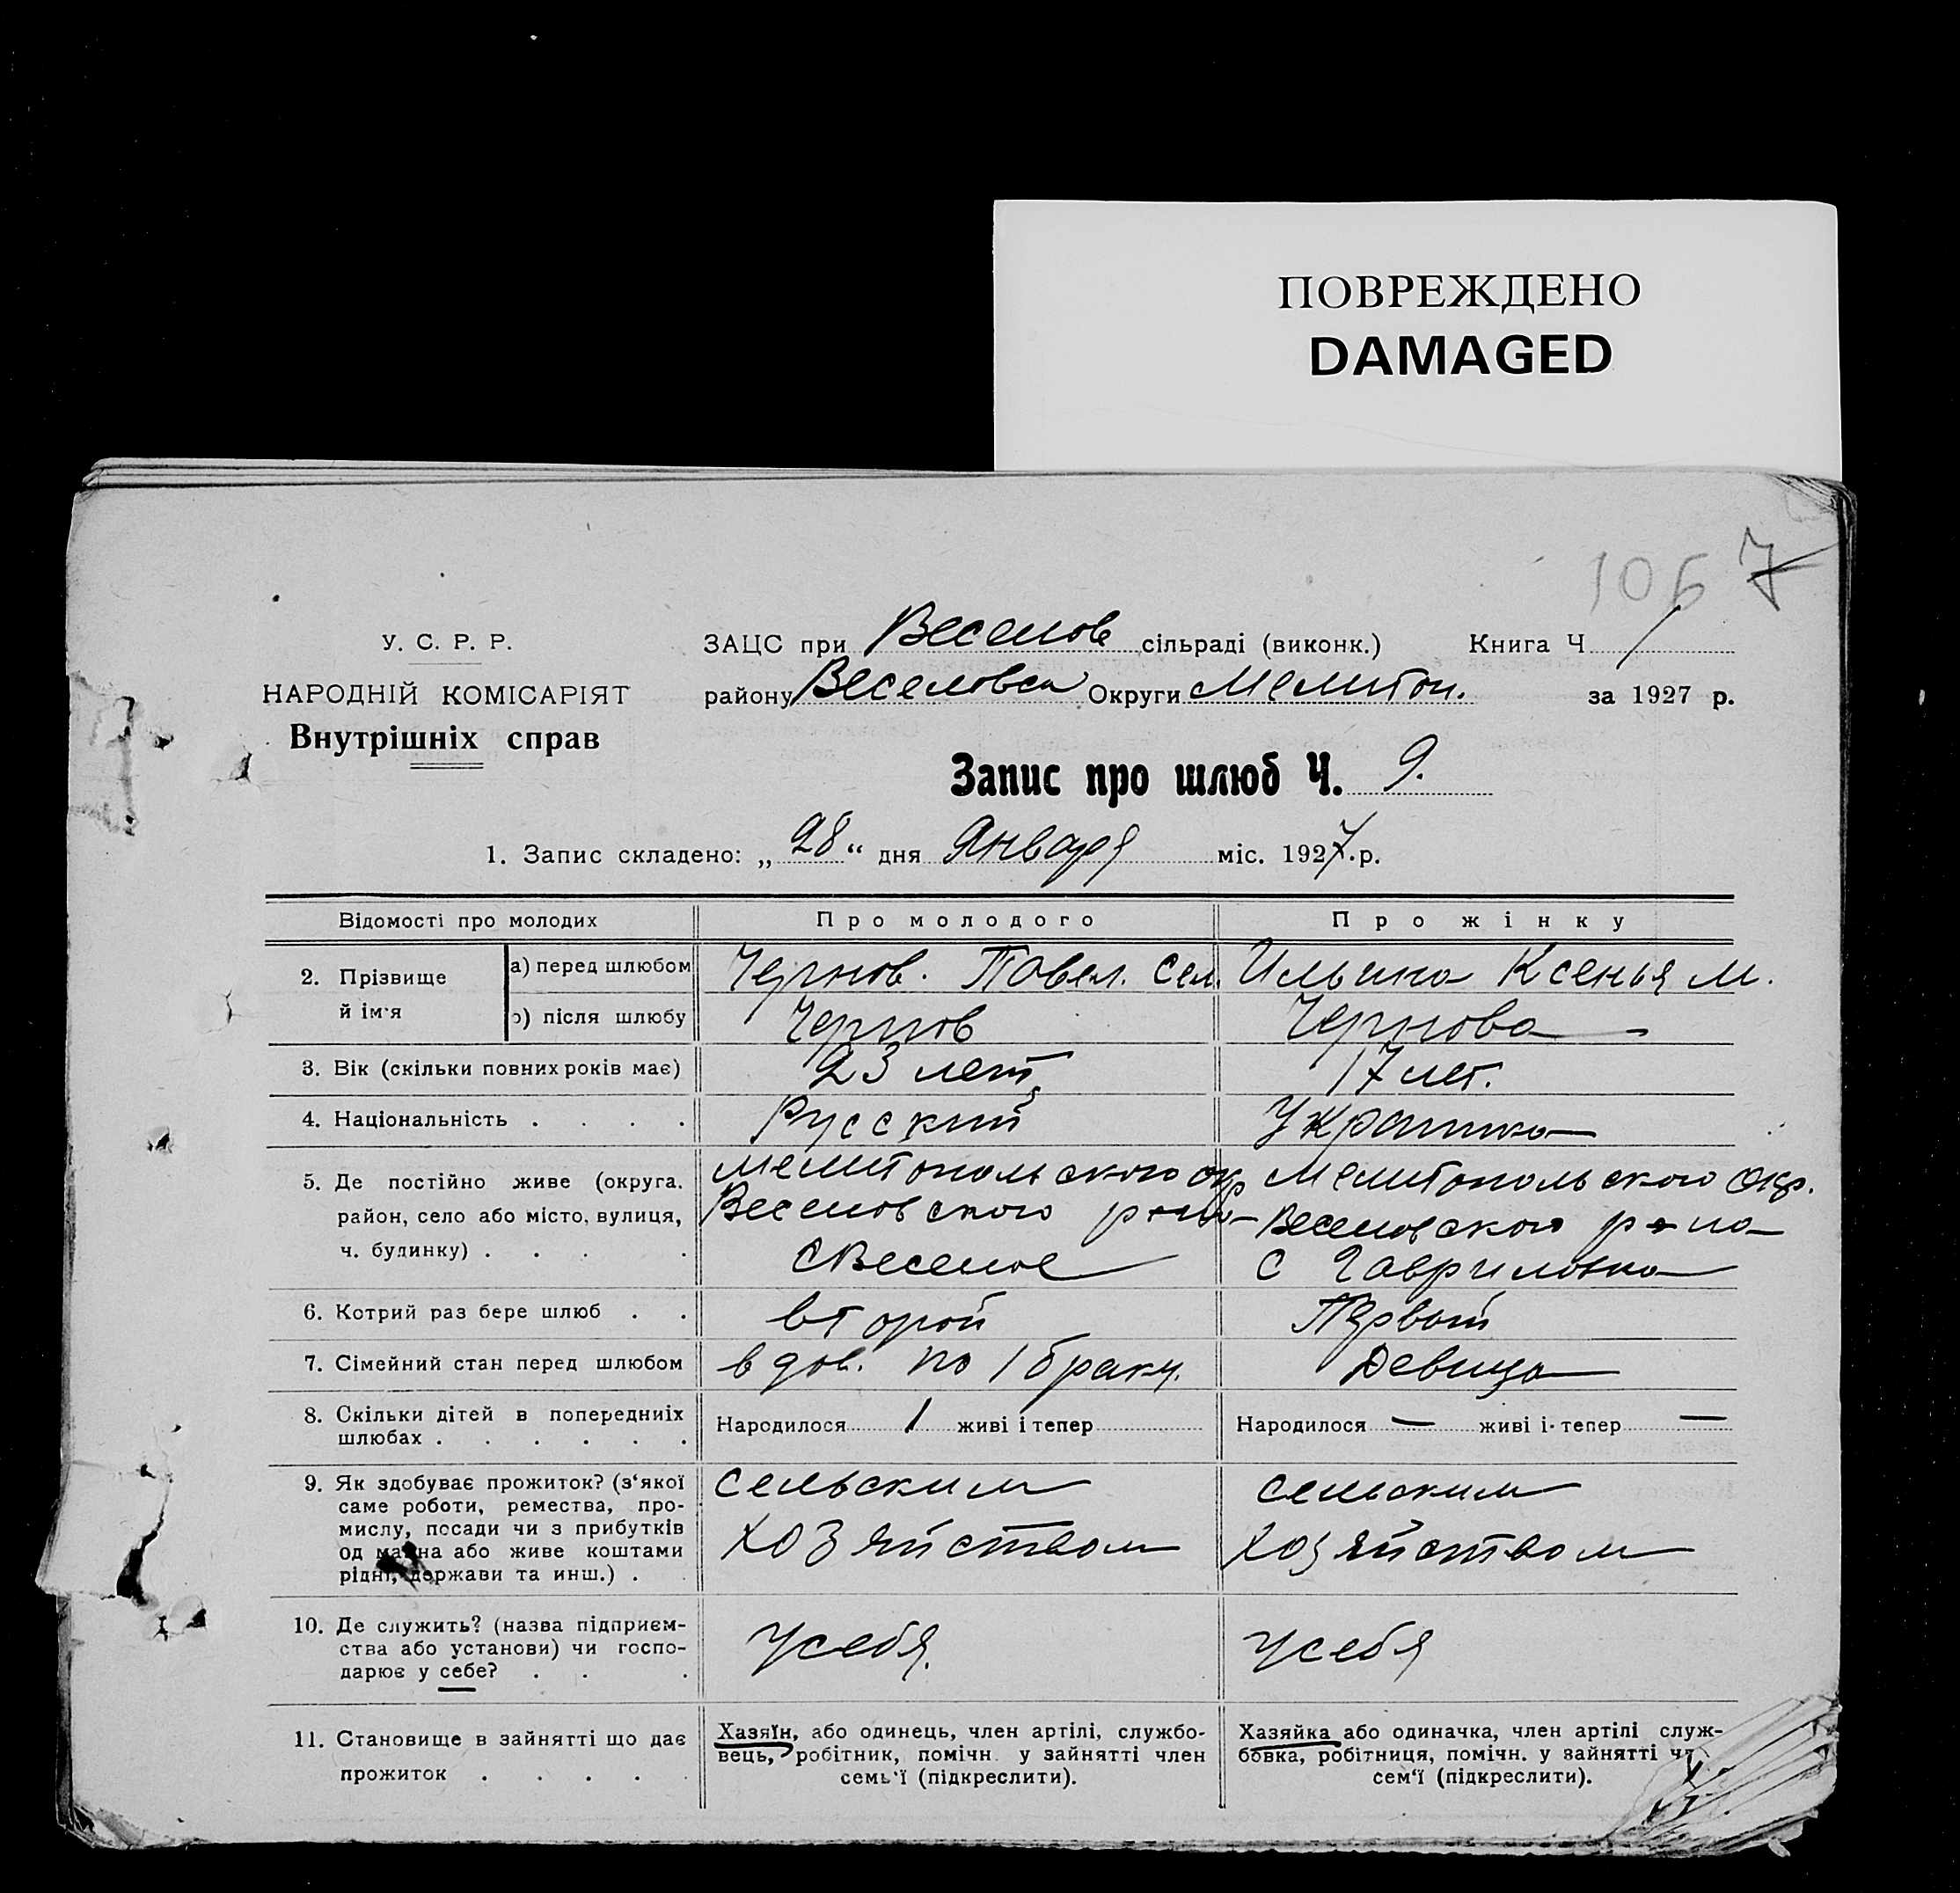 ПОВРЕЖДЕНО
DAMAGED
1067
У. С. Р. Р.
НАРОДНІЙ КОМІСАРІЯТ
Внутрішніх справ
ЗАЦС при Веселов сільраді (виконк.) Книга Ч 1
району Веселовск Округи Мелитоп. за 1927 р.
Запис про шлюб Ч. 9.
1. Запис складено: „ 28 “ дня Января міс. 1927.р.
Відомості про молодих
Про молодого
Про жінку
2. Прізвище й ім'я
а) перед шлюбом
Чернов. Павел. Сем.
Ильина Ксенья М.
б) після шлюбу
Чернов
Чернова
3. Вік (скільки повних років має)
23 лет
17 лет.
4. Національність . . . .
Русский
Украинка
5. Де постійно живе (округа,
район, село або місто, вулиця,
ч. будинку) . . . .
Мелитопольского окр
Веселовского р-на
с Веселое
Мелитопольского Окр.
Веселовского р-на
с Гавриловка
6. Котрий раз бере шлюб . .
второй
Первый
7. Сімейний стан перед шлюбом
вдов. по 1 браку.
Девица
8. Скільки дітей в попередниіх
шлюбах . . . . . .
Народилося 1 живі і тепер
Народилося — живі і тепер —
9. Як здобуває прожиток? (з'якої
саме роботи, ремества, про-
мислу, посади чи з прибутків
од майна або живе коштами
рідні, держави та инш.) .
сельским
хозяйством
сельским
хозяйством
10. Де служить? (назва підприєм-
ства або установи) чи госпо-
дарює у себе? . . .
у себя.
у себя
11. Становище в зайнятті що дає
прожиток . . . . .
Хазяїн, або одинець, член артілі, службо-
вець, робітник, помічн. у зайнятті член
семь'ї (підкреслити).
Хазяйка або одиначка, член артілі служ-
бовка, робітниця, помічн. у зайнятті
сем'ї (підкреслити).